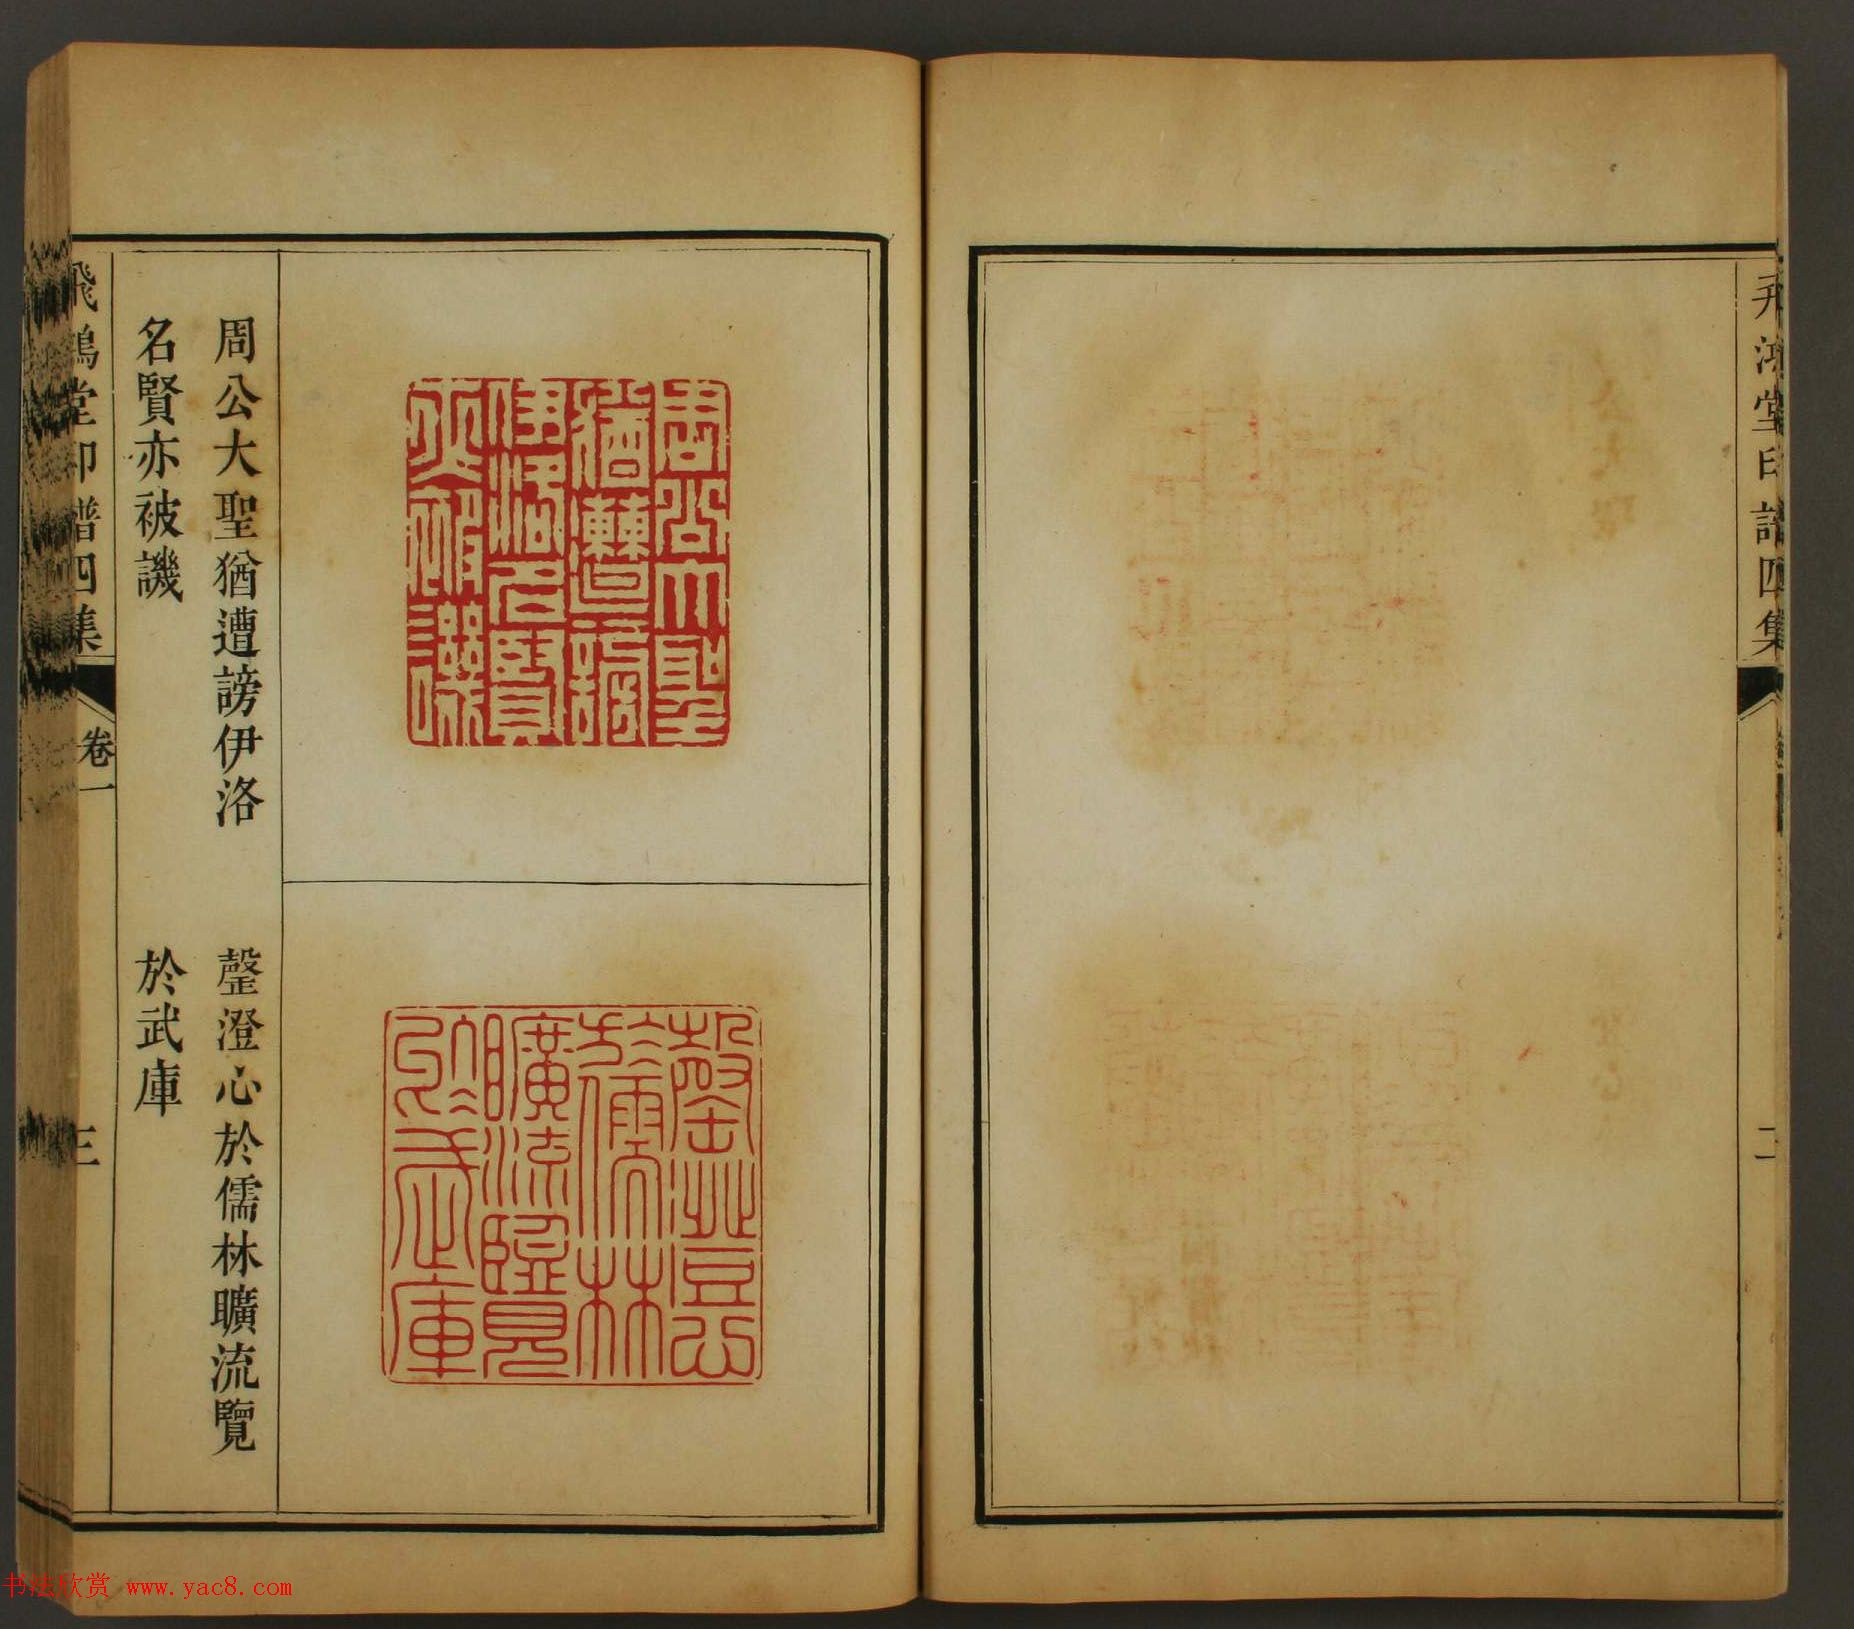 飛鴻堂印譜四集
二
周公大聖猶遭謗伊洛
名賢亦被譏
罄澄心於儒林曠流覽
於武庫
周公大聖
猶遭謗
伊洛名賢
亦被譏
澄心
於儒林
曠流覽
於武庫
飛鴻堂印譜四集
卷一
三
书法欣赏 www.yac8.com